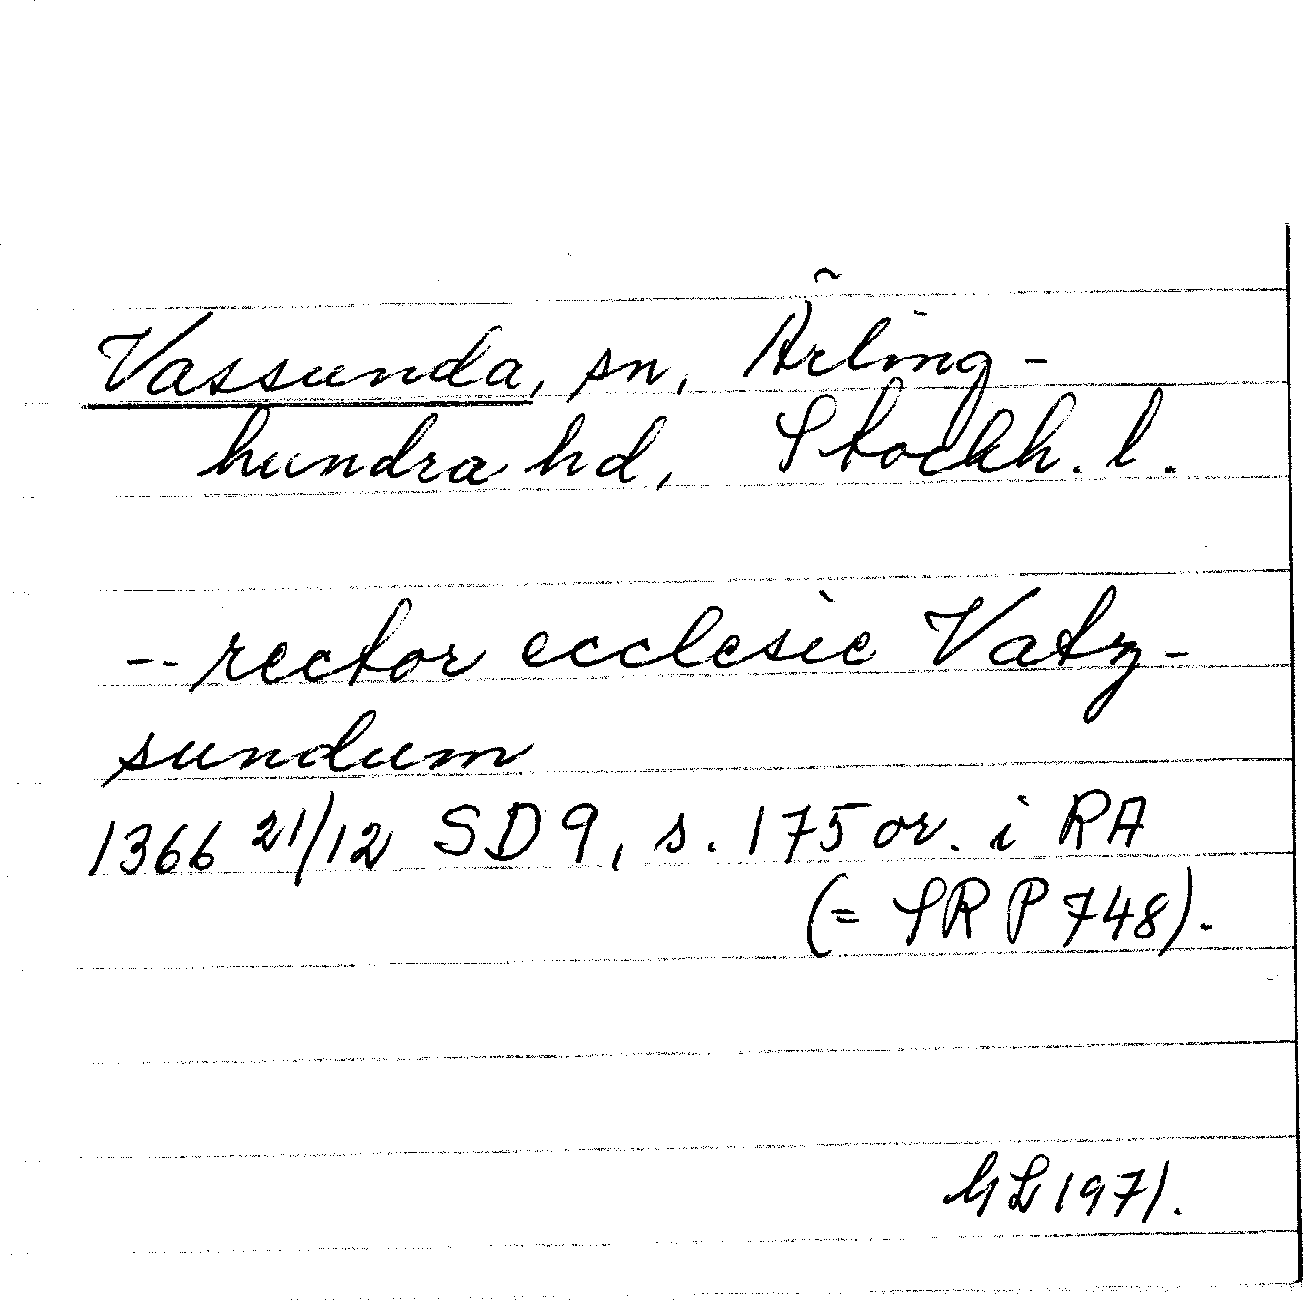 Vassunda, sn, Ärling-
hundra hd, Stockh. l.
-- rector ecclesie Vatz-
sundum
1366 21/12 SD 9, s. 175 or. i RA
(= SRP 748).
GL 1971.